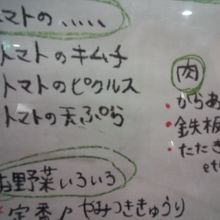 トマトの.....
トマトのキムチ
トマトのピクルス
トマトの天ぷら
野菜いろいろ
定番♪ やみつききゅうり
肉
・からあ
・鉄板
・たたき
etc